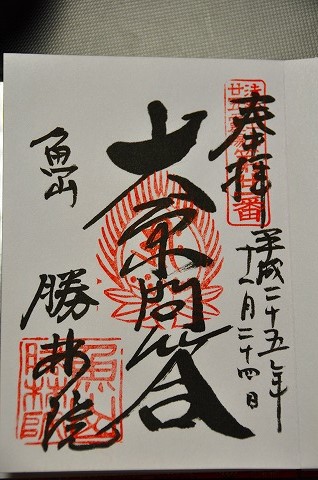 奉拝
平成二十五年
十一月二十四日
大原問答
魚山
勝林院